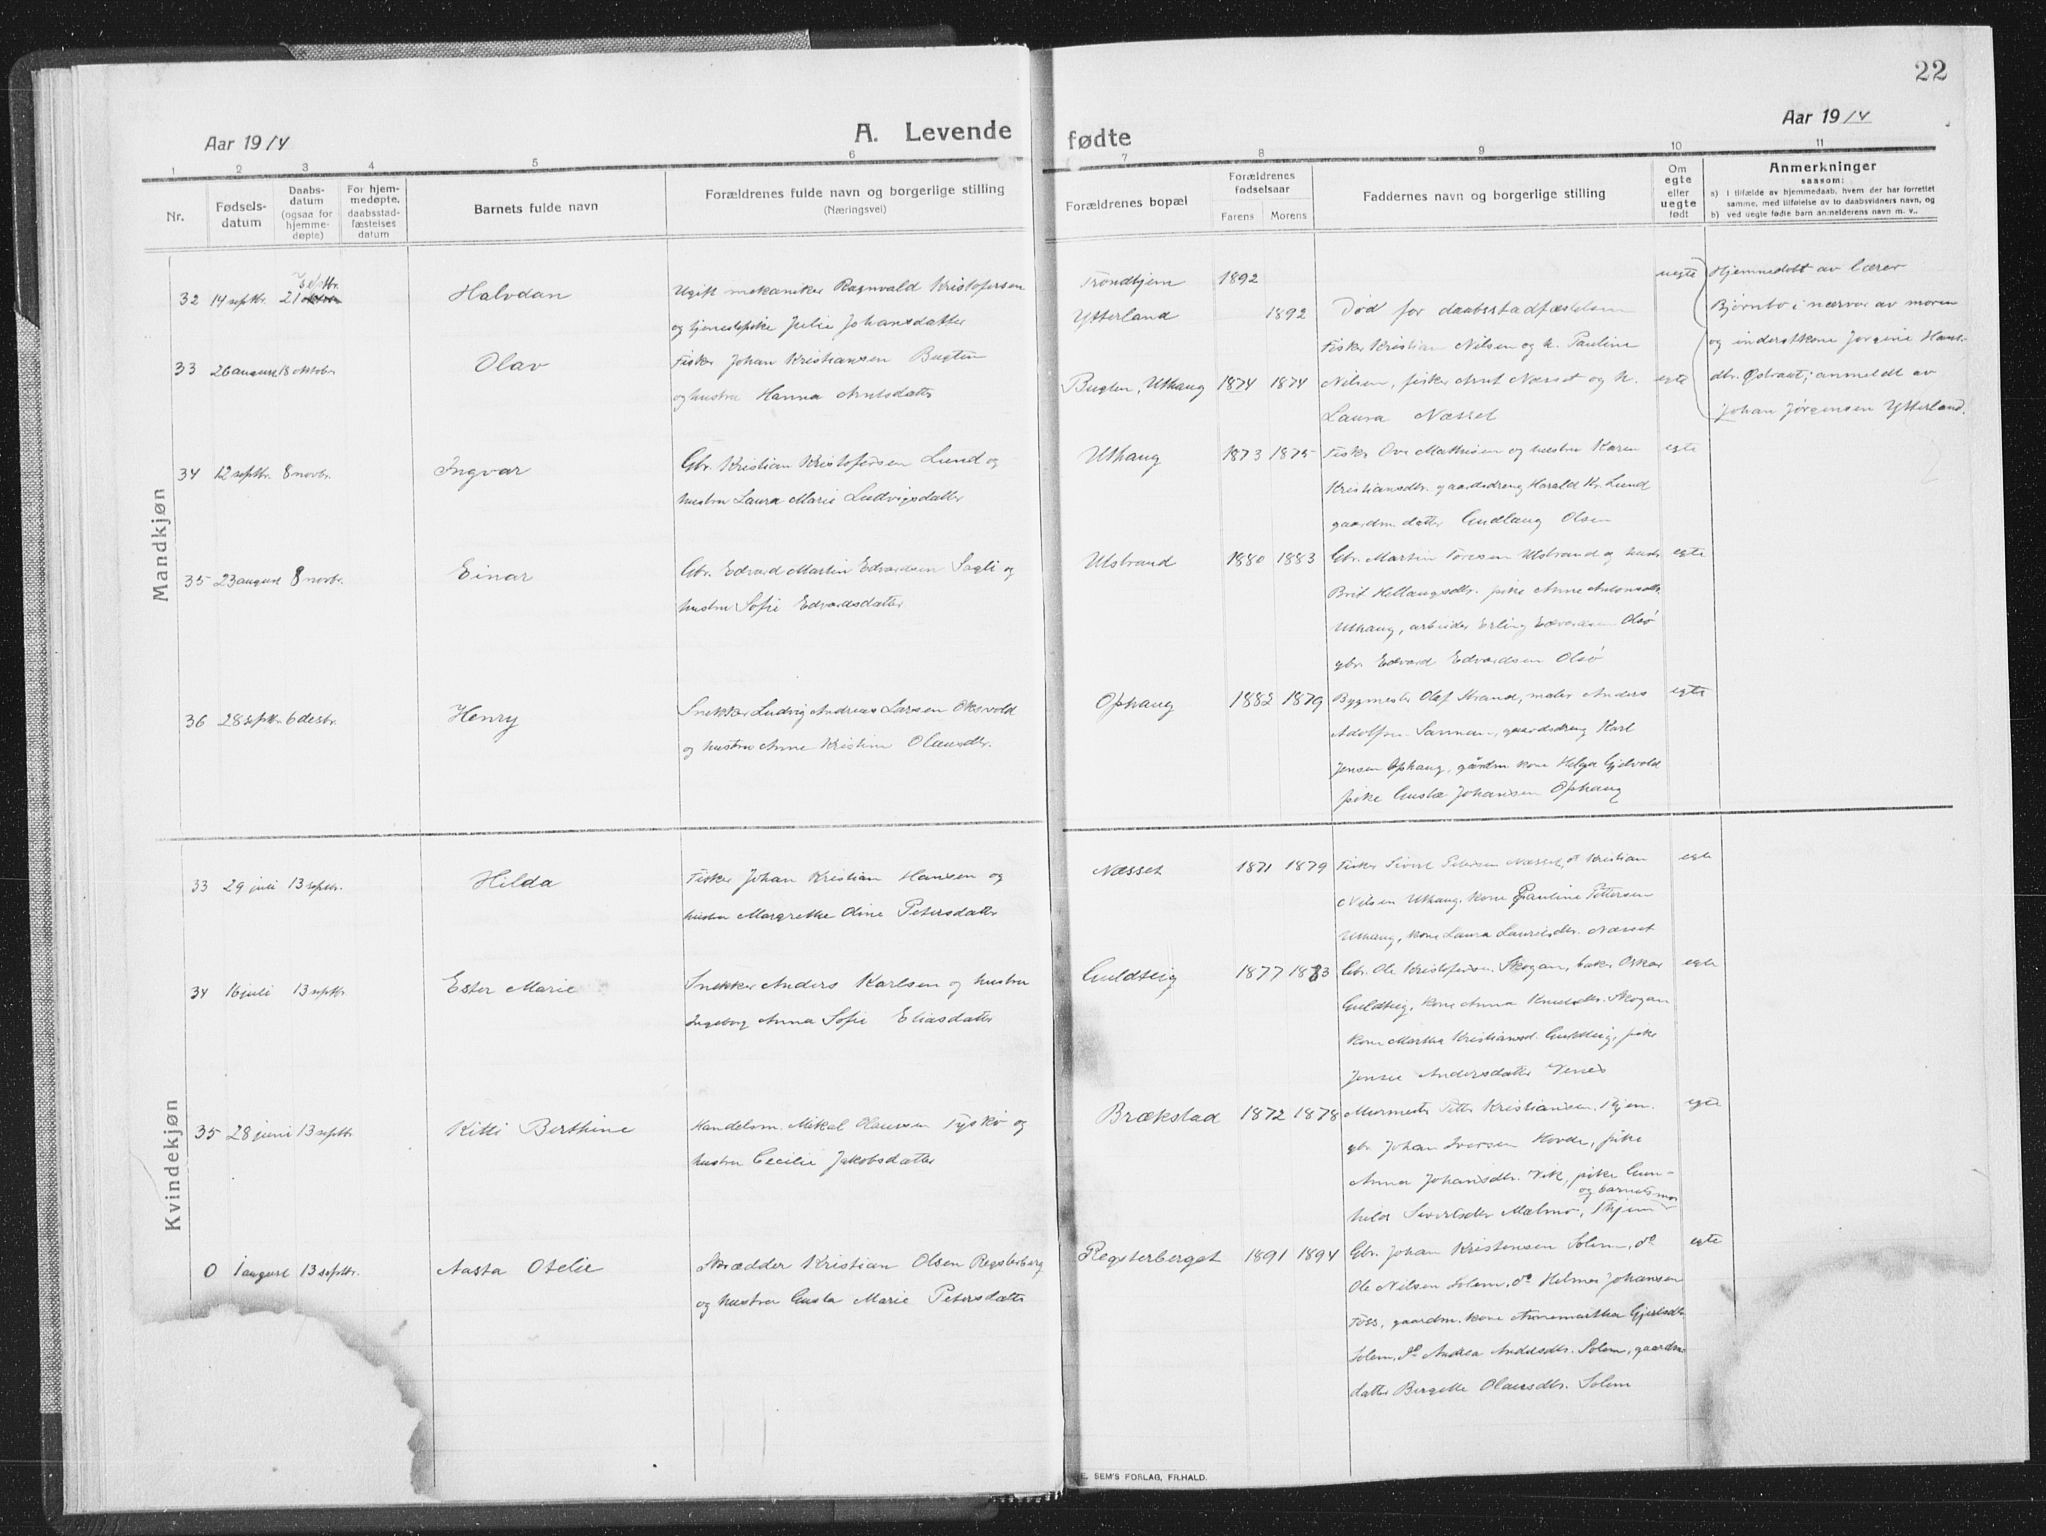 22
Aar 1914
A. Levende
fødte
Aar 1914
1 2 3 4 5 6
7 8 9 10 11
Nr.
Fødsels-
datum
Daabs-
datum
(ogsaa for
hjemme-
døpte)
For hjem-
medøpte,
daabsstad-
fæstelses
datum
Barnets fulde navn
Forældrenes fulde navn og borgerlige stilling
(Næringsvei)
Forældrenes bopæl
Forældrenes
fødselsaar
Farens Morens
Faddernes navn og borgerlige stilling
Om
egte
eller
uegte
født
Anmerkninger
saasom:
a) I tilfælde av hjemmedaab, hvem der har forrettet
samme, med tilføielse av to daabsvidners navn, og
b) ved uegte fødte barn anmelderens navn m. v..
Mandkjøn
32 14 septbr. 21 septbr. Halvdan
Ugift mekaniker Ragnvald Kristofersen
og tjenestepike Julie Johansdatter
Trondhjem 1892
Ytterland 1892
Død for daabsstadfæstelsen
uegte
Hjemmedøbt av lærer
Bjørnbo i nærvær av moren
og inderstkone Jørgine Hans-
dtr. Østraat; anmeldt av
Johan Jørgensen Ytterland.
33 26 august 18 oktober Olav
Fisker Johan Kristiansen Bugten
og hustru Hanna Arntsdatter
Bugten, Uthaug 1874 1874
Fisker Kristian Nilsen og h. Pauline
Nilsen, fisker Arnt Næsset og h.
Laura Næsset
egte
34 12 septbr. 8 novbr. Ingvar
Gbr. Kristian Kristofersen Lund og
hustru Laura Marie Ludvigsdatter
Uthaug 1873 1875
Fisker Ove Mathisen og hustru Karen
Kristiansdtr. gaardsdreng Harald Kr. Lund
gaardm. datter Gudlaug Olsen
egte
35 23 august 8 novbr. Einar
Gbr. Edvard Martin Edvardsen Sagli og
hustru Sofie Edvardsdatter
Ulsbrand 1880 1883
Gbr. Martin Toresen Ulsbrand og hustr.
Brit Hellaugsdtr. pike Anne Antonsdtr.
Uthaug, arbeider Erling Edvardsen Olsø
gbr. Edvard Edvardsen Olsø
egte
36 28 septbr. 6 desbr. Henry
Snekker Ludvig Andreas Larsen Oksvold
og hustru Anne Kristine Olausdtr.
Ophaug 1882 1879
Bygmester Olaf Strand, maler Anders
Adolfsen gaardsdreng Karl
Jensen Ophaug, gårdm. kone Helga Gjelvold
pike Gusta Johansen Ophaug
egte
Kvindekjøn
33 29 juli 13 septbr. Hilda
Fisker Johan Kristian Hansen og
hustru Margrethe Oline Petersdatter
Næsset 1871 1879
Fisker Sivert Petersen Næsset, do Kristian
Nilsen Uthaug, kone Pauline Pettersen
Uthaug, kone Laura Lauritsdtr. Næsset
egte
34 16 juli 13 septbr. Ester Marie
Snekker Anders Karlsen og hustru
Ingeborg Anna Sofie Eliasdatter
Guldteig 1877 1883
Gbr. Ole Kristofersen Skogan, baker Oskar
Guldteig, kone Anna Knudsdtr. Skogan
kone Martha Kristiansd. Guldteig, pike
Jensie Andersdatter
egte
35 28 juni 13 septbr. Kitti Berthine
Handelsm. Mikal Olaussen Fyskø og
hustru Cecilie Jakobsdatter
Brækstad 1872 1878
Murmester Petter Kristiansen, Thjem.
gbr. Johan Iversen Hovde, pike
Anna Johansdtr. Vik, pike Gun-
og barnets mor
hild Sivertsdtr Malmo, Thjem
egte
0 1 august 13 septbr. Aasta Otelie
Skrædder Kristian Olsen Regsterberg
og hustru Gusta Marie Petersdatter
Regsterberget 1891 1894
Gbr. Johan Kristensen Solem, do
Ole Nilsen Solem, do Helmer Johansen
Foss, gaardm. kone Annemartha Gjertsdtr.
Solem, do Andrea Andersdtr. Solem, gaardm.
datter Bergitte Olausdtr. Solem
egte
E. SEM'S FORLAG, FR.HALD.